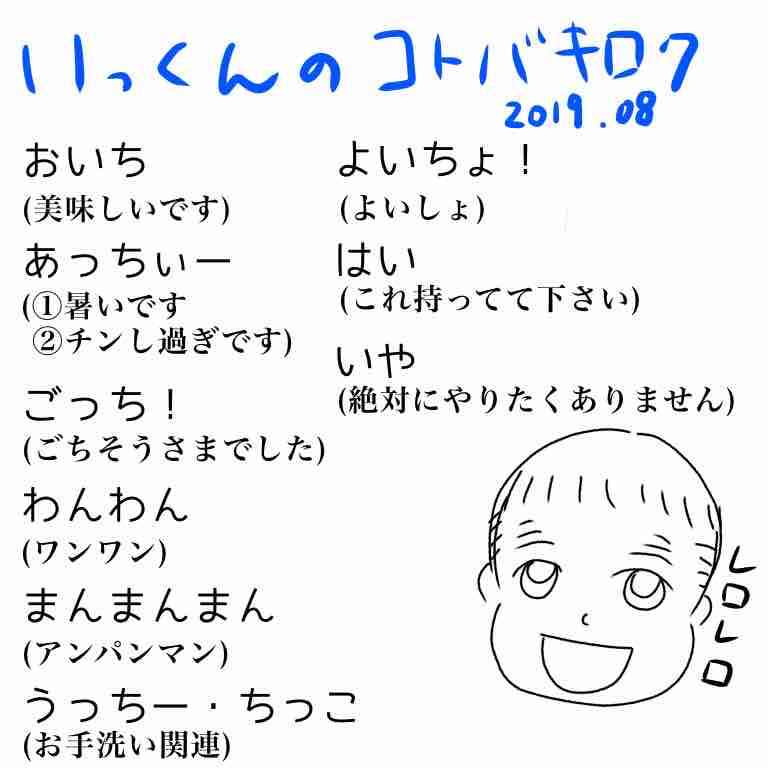 いっくんのコトバキロク
2019.08
おいち
(美味しいです)
あっちぃー
(①暑いです
②チンし過ぎです)
ごっち！
(ごちそうさまでした)
わんわん
(ワンワン)
まんまんまん
(アンパンマン)
うっちー・ちっこ
(お手洗い関連)
よいちょ！
(よいしょ)
はい
(これ持ってて下さい)
いや
(絶対にやりたくありません)
レロレロ